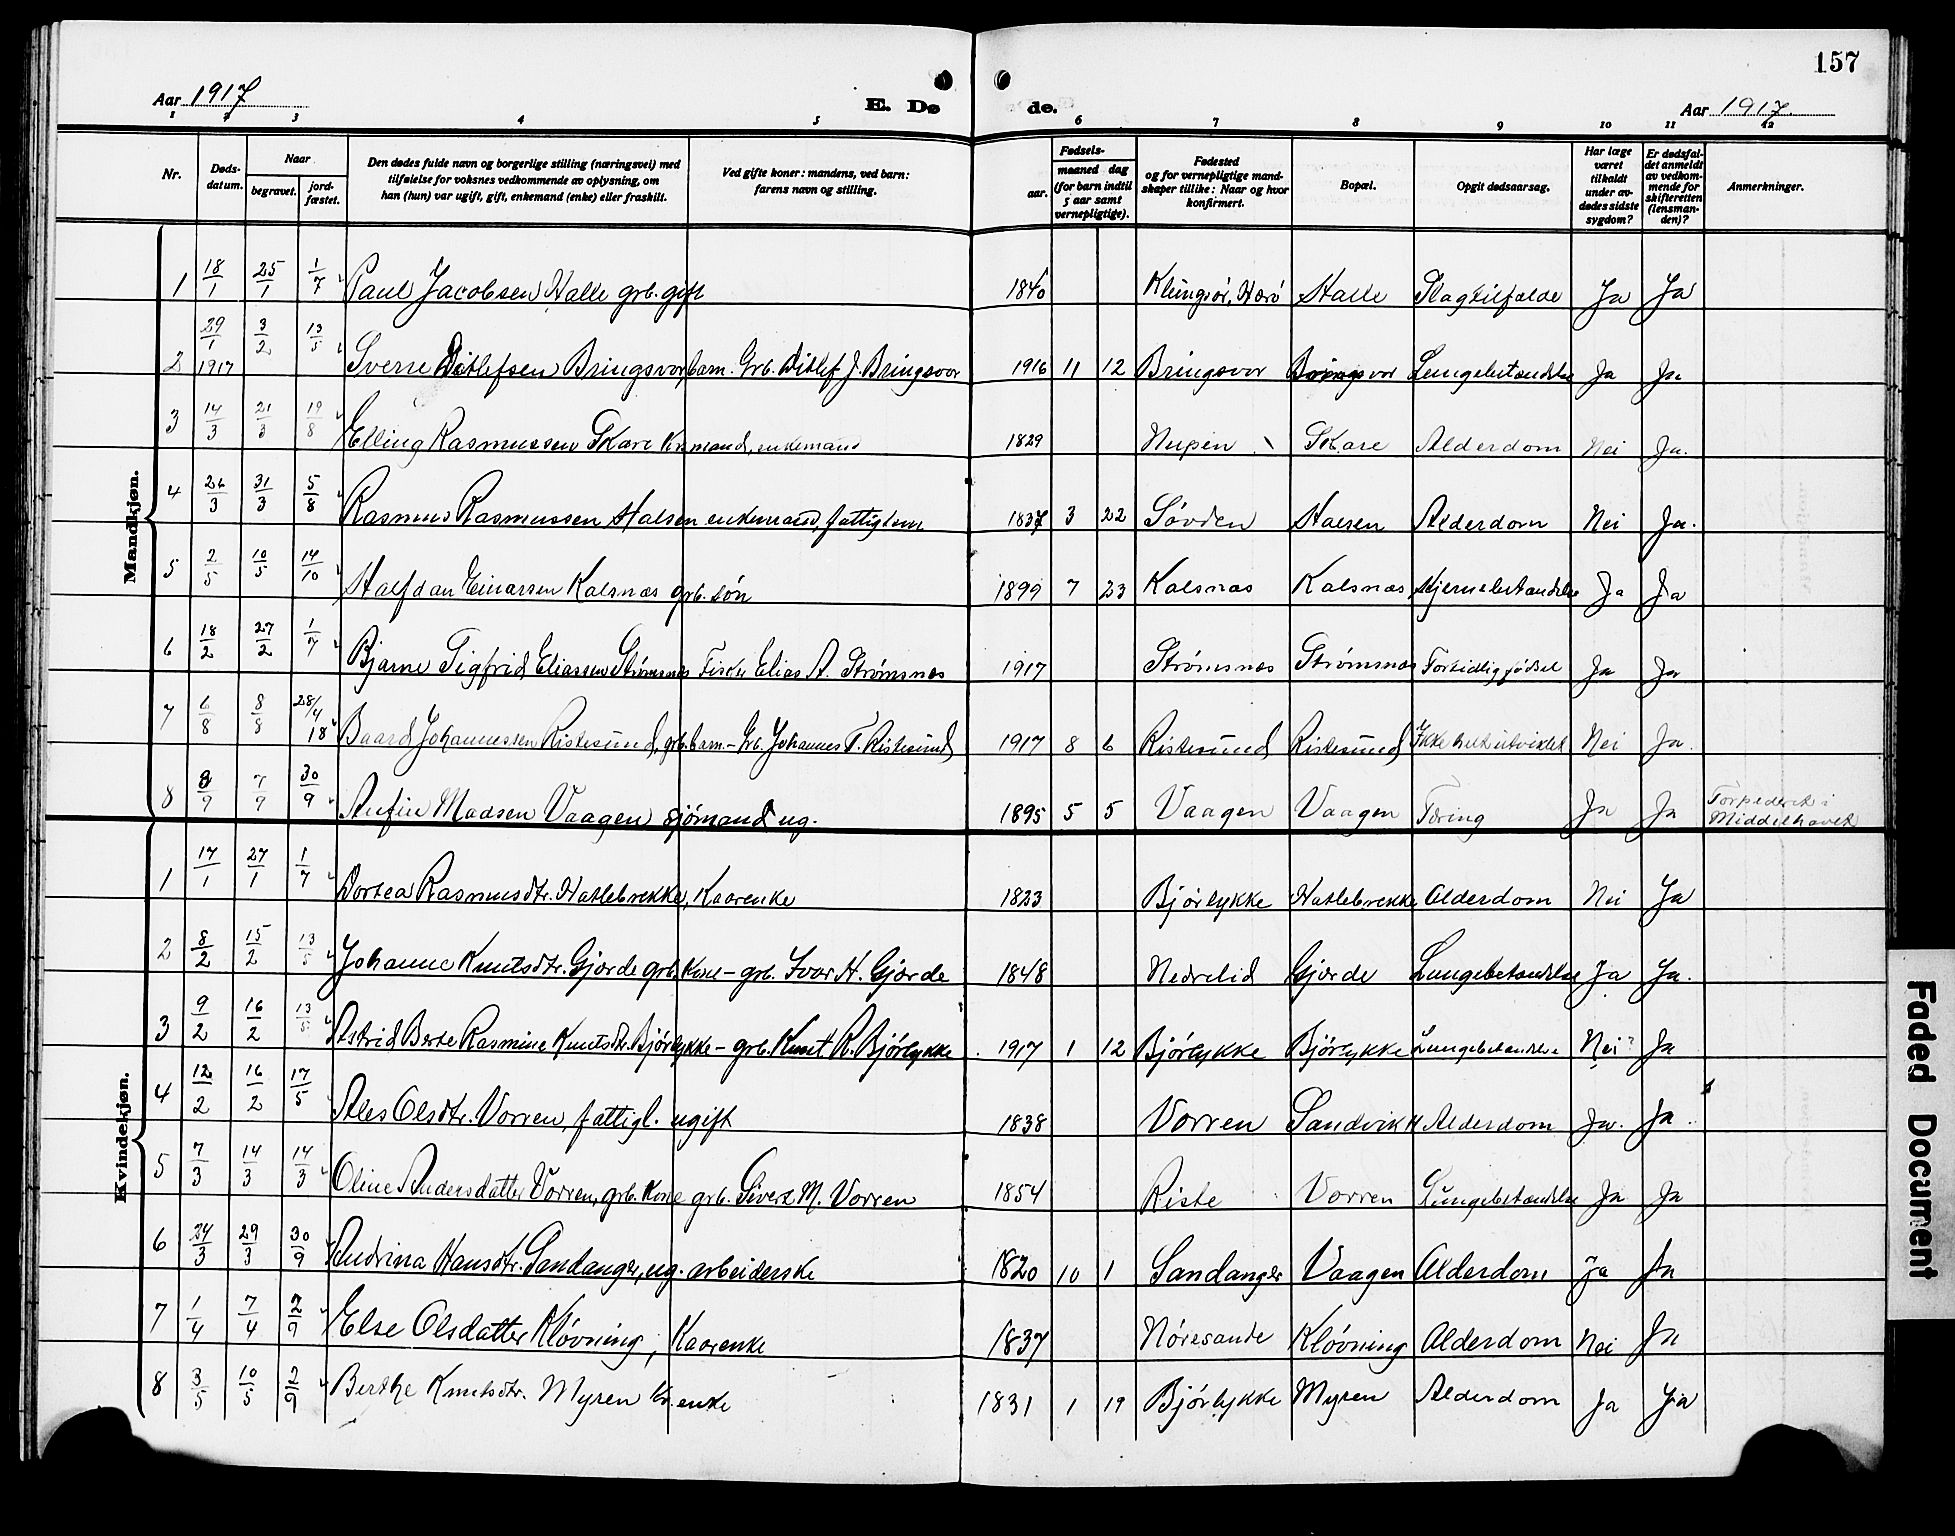 157
Aar 1917
E. Dø
de.
Aar 1917.
1 2 3 4 5 6 7 8 9 10 11 12
Nr.
Døds-
datum.
Naar
begravet.
jord-
fæstet.
Den dødes fulde navn og borgerlige stilling (næringsvei) med
tilføielse for voksnes vedkommende av oplysning, om
han (hun) var ugift, gift, enkemand (enke) eller fraskilt.
Ved gifte koner: mandens, ved barn:
farens navn og stilling.
Fødsels-
aar.
maaned dag
(for barn indtil
5 aar samt
vernepligtige).
Fødested
og for vernepligtige mand-
skaper tillike: Naar og hvor
konfirmert.
Bopæl.
Opgit dødsaarsag.
Har læge
været
tilkaldt
under av-
dødes sidste
sygdom?
Er dødsfal-
det anmeldt
av vedkom-
mende for
skifteretten
(lensman-
den)?
Anmerkninger.
Mandkjøn.
1 18/1 25/1 1/7 Paul Jacobsen Halle grb. gift 1840 Klungsør, Herø Halle Slagtilfælde Ja Ja
2 29/1 1917 3/2 13/5 Sverre Ditlefsen Bringsvor, barn. Grb. Ditlef J. Bringsvor 1916 11 12 Bringsvor Bringsvor Lungebetændelse Ja Ja
3 14/3 21/3 19/8 Elling Rasmussen Skare Krmand, enkemand 1829 Nupen Skare Alderdom Nei Ja.
4 26/3 31/3 5/8 Rasmus Rasmussen Halsen enkemand, fattiglem 1837 3 22 Søvden Halsen Alderdom Nei Ja.
5 2/5 10/5 14/10 Halfdan Einarsen Kalsnæs grb. søn 1899 7 23 Kalsnæs Kalsnæs Hjernebetændelse Ja Ja
6 18/2 27/2 1/7 Bjarne Sigfrid Eliassen Strømsnes Fisker Elias A. Strømsnes 1917 Strømsnæs Strømsnæs Fortidlig fødsel Ja Ja
7 6/8 8/8 28/4 18 Baard Johannessen Ristesund, grb. barn. - Grb. Johannes T. Ristesund 1917 8 6 Ristesund Ristesund Ikke helt utviklet Nei Ja.
8 3/9 7/9 30/9 Anfin Madsen Vaagen sjømand ug. 1895 5 5 Vaagen Vaagen Tæring Ja Ja Torpedert i
Middelhavet
Kvindekjøn.
1 17/1 27/1 1/7 Dortea Rasmusdtr. Hatlebrekke, Kaarenke 1823 Bjørlykke Hatlebrekke Alderdom Nei Ja
2 8/2 15/2 13/5 Johanne Knutsdtr. Gjørde grb. Kone - grb. Ivar H. Gjørde 1848 Nedrelid Gjørde Lungebetændelse Ja Ja.
3 9/2 16/2 13/5 Astrid Berte Rasmine Knutsdtr. Bjørlykke - grb. Knut R. Bjørlykke 1917 1 12 Bjørlykke Bjørlykke Lungebetændelse Nei? Ja
4 12/2 16/2 17/5 Ales Olsdtr. Vorren, fattigl. ugift 1838 Vorren Sandvik Alderdom Ja. Ja.
5 7/3 14/3 14/3 Oline Andersdatter Vorren, grb. Kone grb. Sivert M. Vorren 1854 Riste Vorren Lungebetændelse Ja Ja
6 24/3 29/3 30/9 Andrina Hansdtr. Sandanger, ug. arbeiderske 1820 10 1 Sandanger Vaagen Alderdom Ja Ja
7 1/4 7/4 2/9 Else Olsdatter Kløvning, Kaarenke 1837 Nøresande Kløvning Alderdom Nei Ja
8 3/5 10/5 2/9 Berthe Knutsdtr. Myren Kr. enke 1831 1 19 Bjørlykke Myren Alderdom Ja Ja
Faded Document